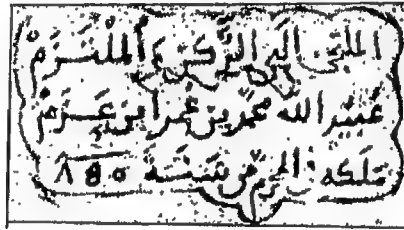 الملتجى إلى الركن والملتزم
عبيد الله محمد بن عمر ابن عزم
ملكه سنة ٨٥٥